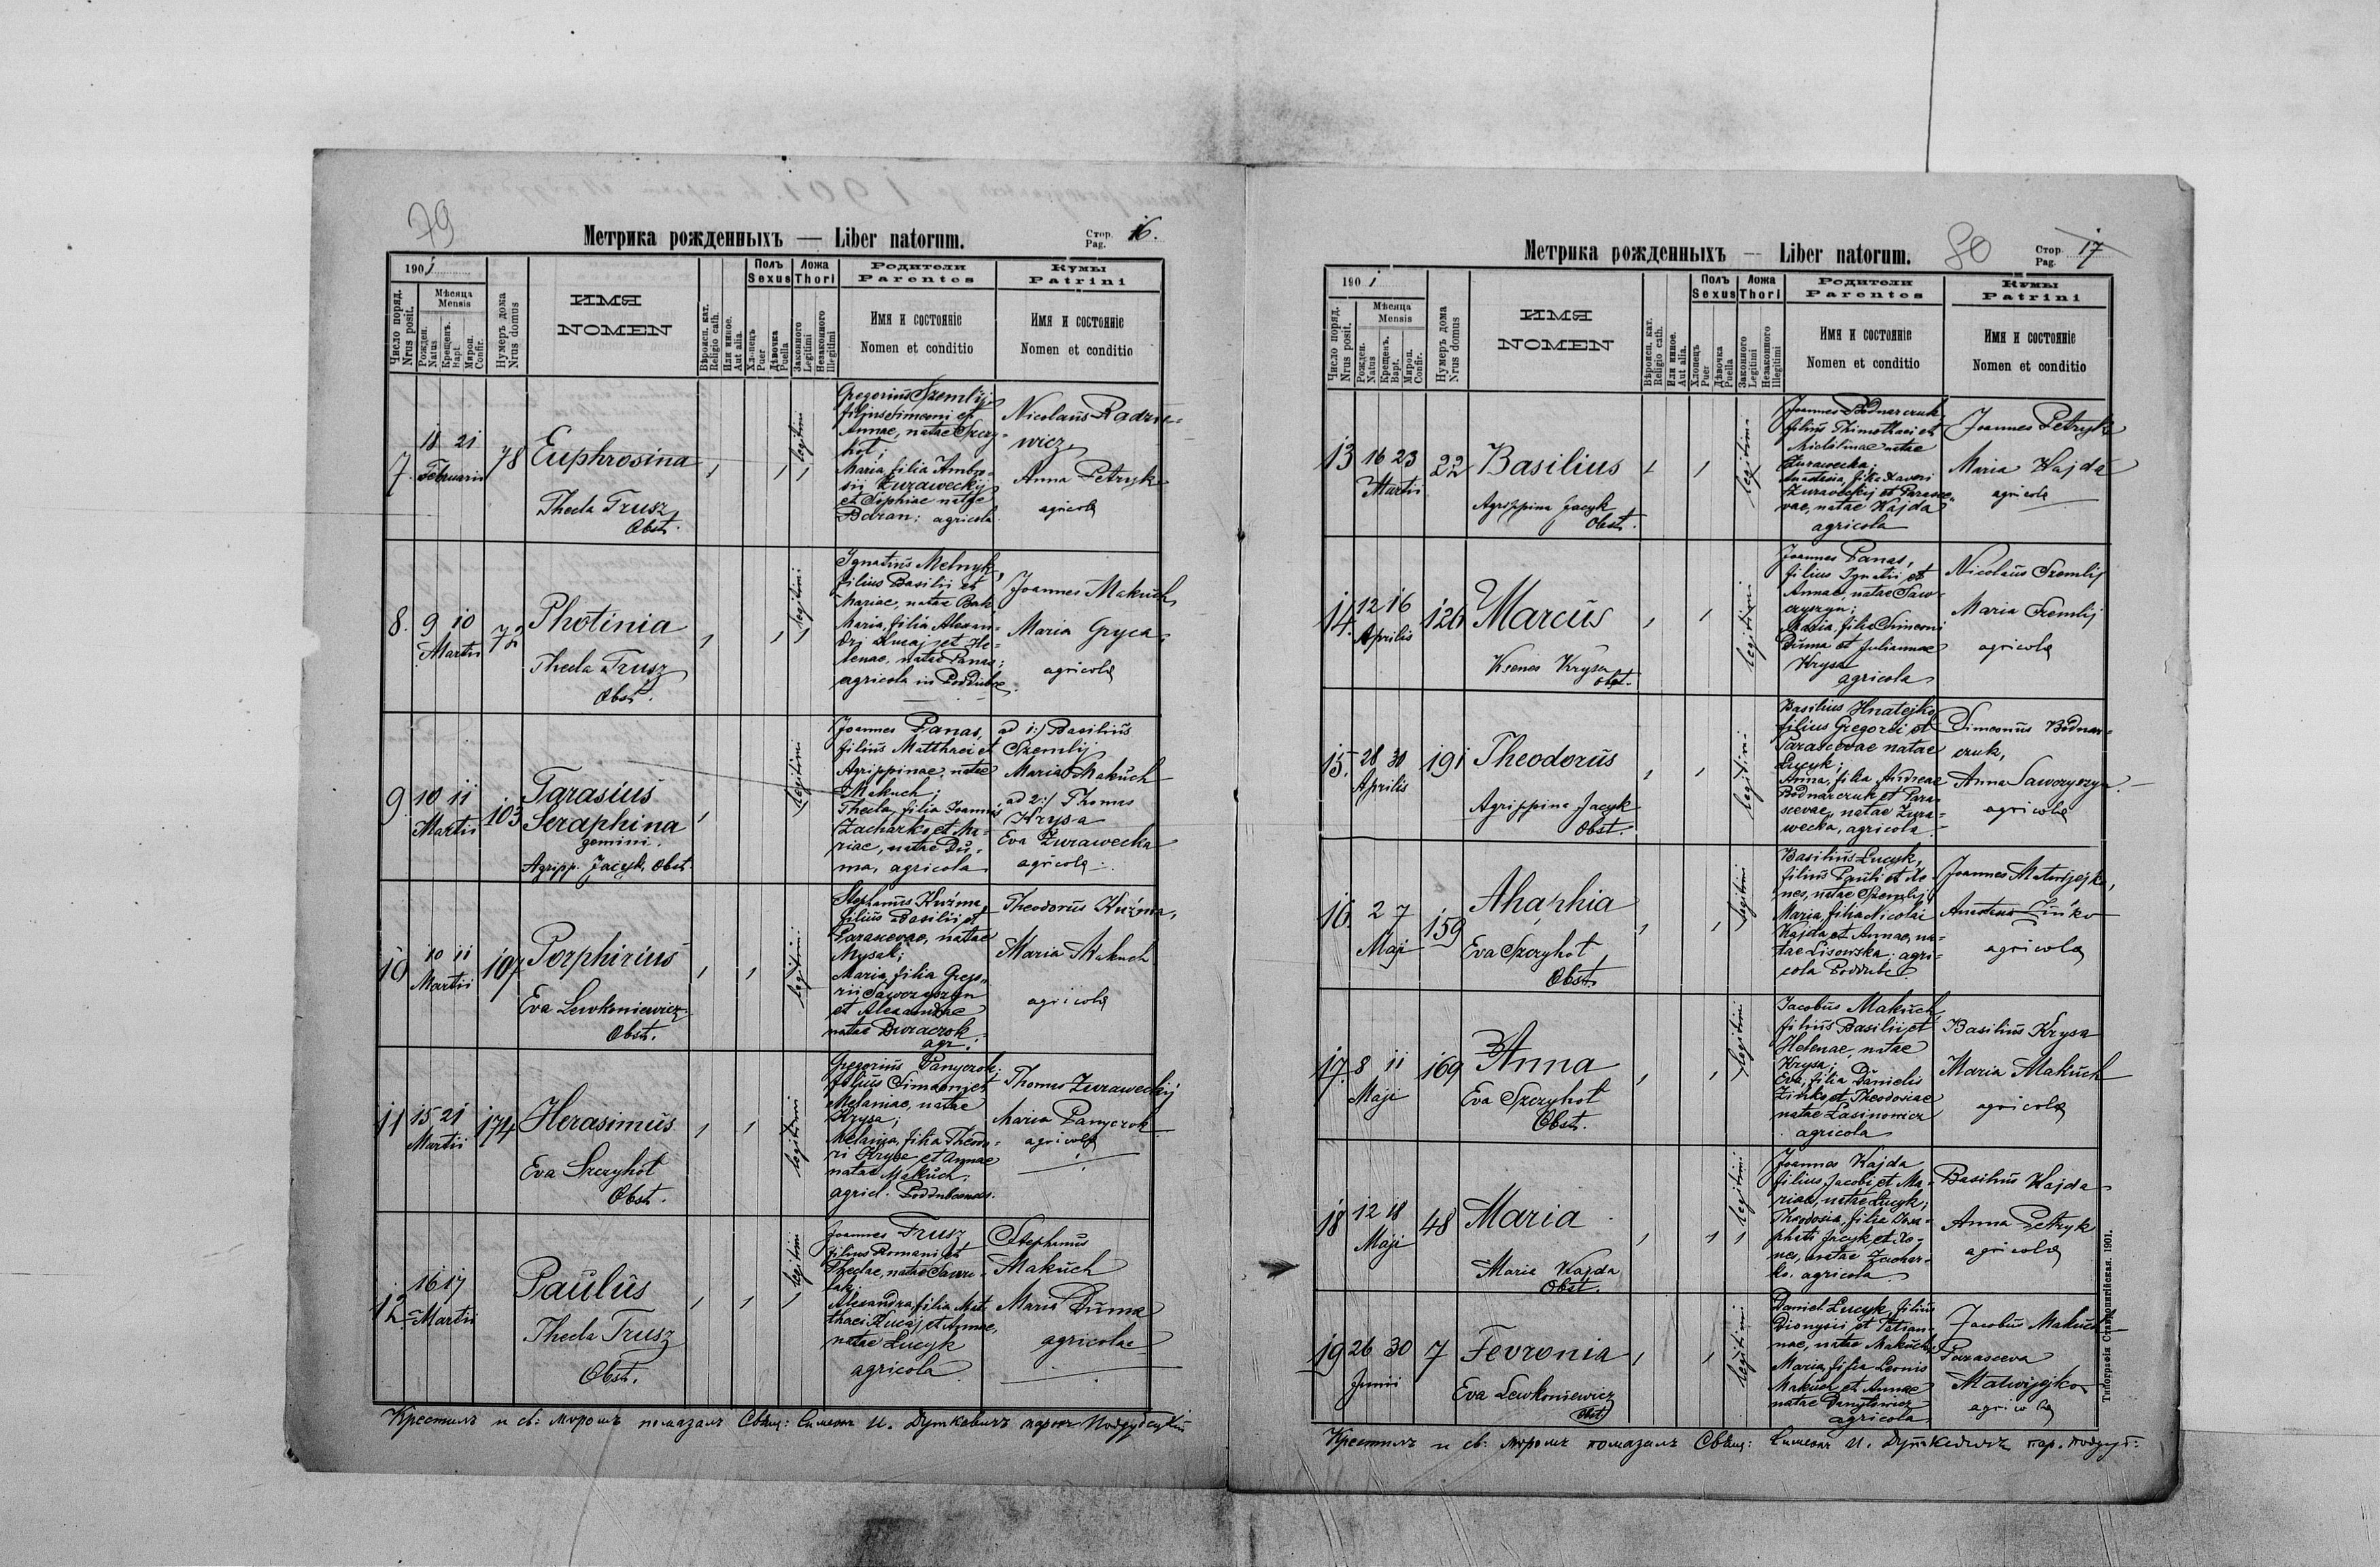 79
Метрика рожденныхъ — Liber natorum.
Стор. Pag. 16.
1901
Число поряд. Nrus posit.
Мѣсяца Mensis
Рожден. Natus
Крещенъ. Bapt.
Мѵроп. Confir.
Нумеръ дома Nrus domus
ИМЯ
NOMEN
Вѣроисп. кат. Religio cath.
Или иное. Aut alia.
Полъ Sexus
Хлопецъ Puer
Дѣвочка Puella
Ложа Thori
Законного Legitimi
Незаконного Illegitimi
Родители
Parentes
Имя и состояніе
Nomen et conditio
Кумы
Patrini
Имя и состояніе
Nomen et conditio
7
18 21
Februarii
78
Euphrosina
Thecla Trusz
Obst.
legitimi
Gregorius Szemlij
filius Simeoni et
Annae, natae Szczy-
hot;
Maria, filia Ambro-
sii Żuraweckij
et Sophiae natae
Baran; agricola
Nicolaus Radzie-
wicz
Anna Petryk
agricolae
8.
9 10
Martii
72
Photinia
Thecla Trusz
Obst.
legitimi
Ignatius Melnyk,
filius Basilii et
Mariae, natae Bak
Maria, filia Alexan-
dri Kucaj et He-
lenae, natae Panas;
agricola in Poddubce
Joannes Makuch
Maria Gryca
agricolae
9
10 11
Martii
103
Tarasius
Seraphina
gemini.
Agripp. Jacyk Obst.
legitimi
Joannes Panas,
filius Matthaei et
Agrippinae, natae
Makuch;
Thecla, filia Joannis
Zacharko et Ma-
riae, natae Du-
ma, agricola
ad 1:) Basilius
Szemlij
Maria Makuch
ad 2:) Thomas
Krysa
Eva Żurawecka
agricolae
10
10 11
Martii
107
Porphirius
Eva Lewkoniewicz
Obst.
legitimi
Stephanus Kuźma,
filius Basilii et
Parascevae, natae
Mysak;
Maria, filia Grego-
rii Sawczyszyn
et Alexandrae
natae Buraczok
agr.
Theodorus Kuźma,
Maria Makuch
agricolae
11
15 21
Martii
174
Herasimus
Eva Szczyhot
Obst.
legitimi
Gregorius Panyczok
filius Simeoni et
Melaniae, natae
Krysa;
Melanija, filia Theodo-
ri Krysa et Annae
natae Makuch;
agricl.
Thomas Żuraweckij
Maria Panyczok
agricolae
12.
16 17
Martii
Paulus
Thecla Trusz
Obst.
legitimi
Joannes Trusz
filius Romani et
Theclae, natae
Alexandra, filia Mat-
thaei Kucaj et Annae,
natae Lucyk
agricola
Stephanus
Makuch
Maria Duma
agricolae
Крестилъ и св: мѵромъ помазалъ Свящ: Симеонъ И. Дуткевичъ парохъ Поддубецкій
Метрика рожденныхъ — Liber natorum.
80
Стор. Pag. 17
1901
Число поряд. Nrus posit.
Мѣсяца Mensis
Рожден. Natus
Крещенъ. Bapt.
Мѵроп. Confir.
Нумеръ дома Nrus domus
ИМЯ
NOMEN
Вѣроисп. кат. Religio cath.
Или иное. Aut alia.
Полъ Sexus
Хлопецъ Puer
Дѣвочка Puella
Ложа Thori
Законного Legitimi
Незаконного Illegitimi
Родители
Parentes
Имя и состояніе
Nomen et conditio
Кумы
Patrini
Имя и состояніе
Nomen et conditio
13
16 23
Martii
22
Basilius
Agrippina Jacyk
Obst.
legitimi
Joannes Bodnarczuk,
filius Thimothaei et
natae
Żurawecka;
Anastasia, filia Xaveri
Żuraweckij et Parasce-
vae, natae Kajda
agricola
Joannes Petryk
Maria Kajda
agricolae
14.
12 16
Aprilis
126
Marcus
Ksenes Krysa
obst.
legitimi
Joannes Panas,
filius Ignatii et
Annae, natae Saw-
czyszyn;
Maria, filia Simeoni
Duma et Juliannae
Krysa
agricola
Nicolaus Szemlij
Maria Szemlij
agricolae
15.
28 30
Aprilis
191
Theodorus
Agrippina Jacyk
Obst.
legitimi
Basilius Hnatejko,
filius Gregorii et
Parascevae natae
Lucyk;
Anna, filia Andreae
Bodnarczuk et Para-
scevae, natae Żura-
wecka, agricola
Simeonus Bodnar-
czuk,
Anna Sawczyszyn
agricolae
16.
2 7
Maji
159
Ahaphia
Eva Szczyhot
Obst.
legitimi
Basilius Lucyk,
filius Pauli et Xe-
nes, natae Szemlij
Maria, filia Nicolai
Kajda et Annae, na-
tae Lisowska; agri-
cola Poddubc.
Joannes Matwijejko,
Zinko
agricolae
17.
8 11
Maji
169
Anna
Eva Szczyhot
Obst.
legitimi
Jacobus Makuch,
filius Basilii et
Helenae, natae
Krysa;
Eva, filia Danielis
Zinko et Theodosiae
natae Lasinowicz
agricola
Basilius Krysa
Maria Makuch
agricolae
18
12 18
Maji
48
Maria
Maria Kajda
Obst.
legitimi
Joannes Kajda
filius Jacobi et Ma-
riae, natae Lucyk;
Theodosia, filia Josa-
phati Jacyk et Xe-
nes, natae Zachar-
ko. agricola
Basilius Kajda
Anna Petryk
agricolae
19
26 30
Junii
7
Fevronia
Eva Lewkoniewicz
Obst.
legitimi
Daniel Lucyk, filius
Dionysii et Tatian-
nae, natae Makuch
Maria, filia Leonis
Makuch et Annae
natae Danylowicz
agricola
Jacobus Makuch
Parasceva
Matwijejko
agricolae
Типографія Ставропигійская. 1901.
Крестилъ и св: мѵромъ помазалъ Свящ: Симеонъ И. Дуткевичъ пар. Поддуб: